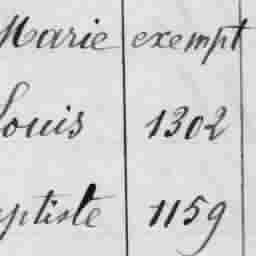 Marie exempt
Louis 1302
aptiste 1159